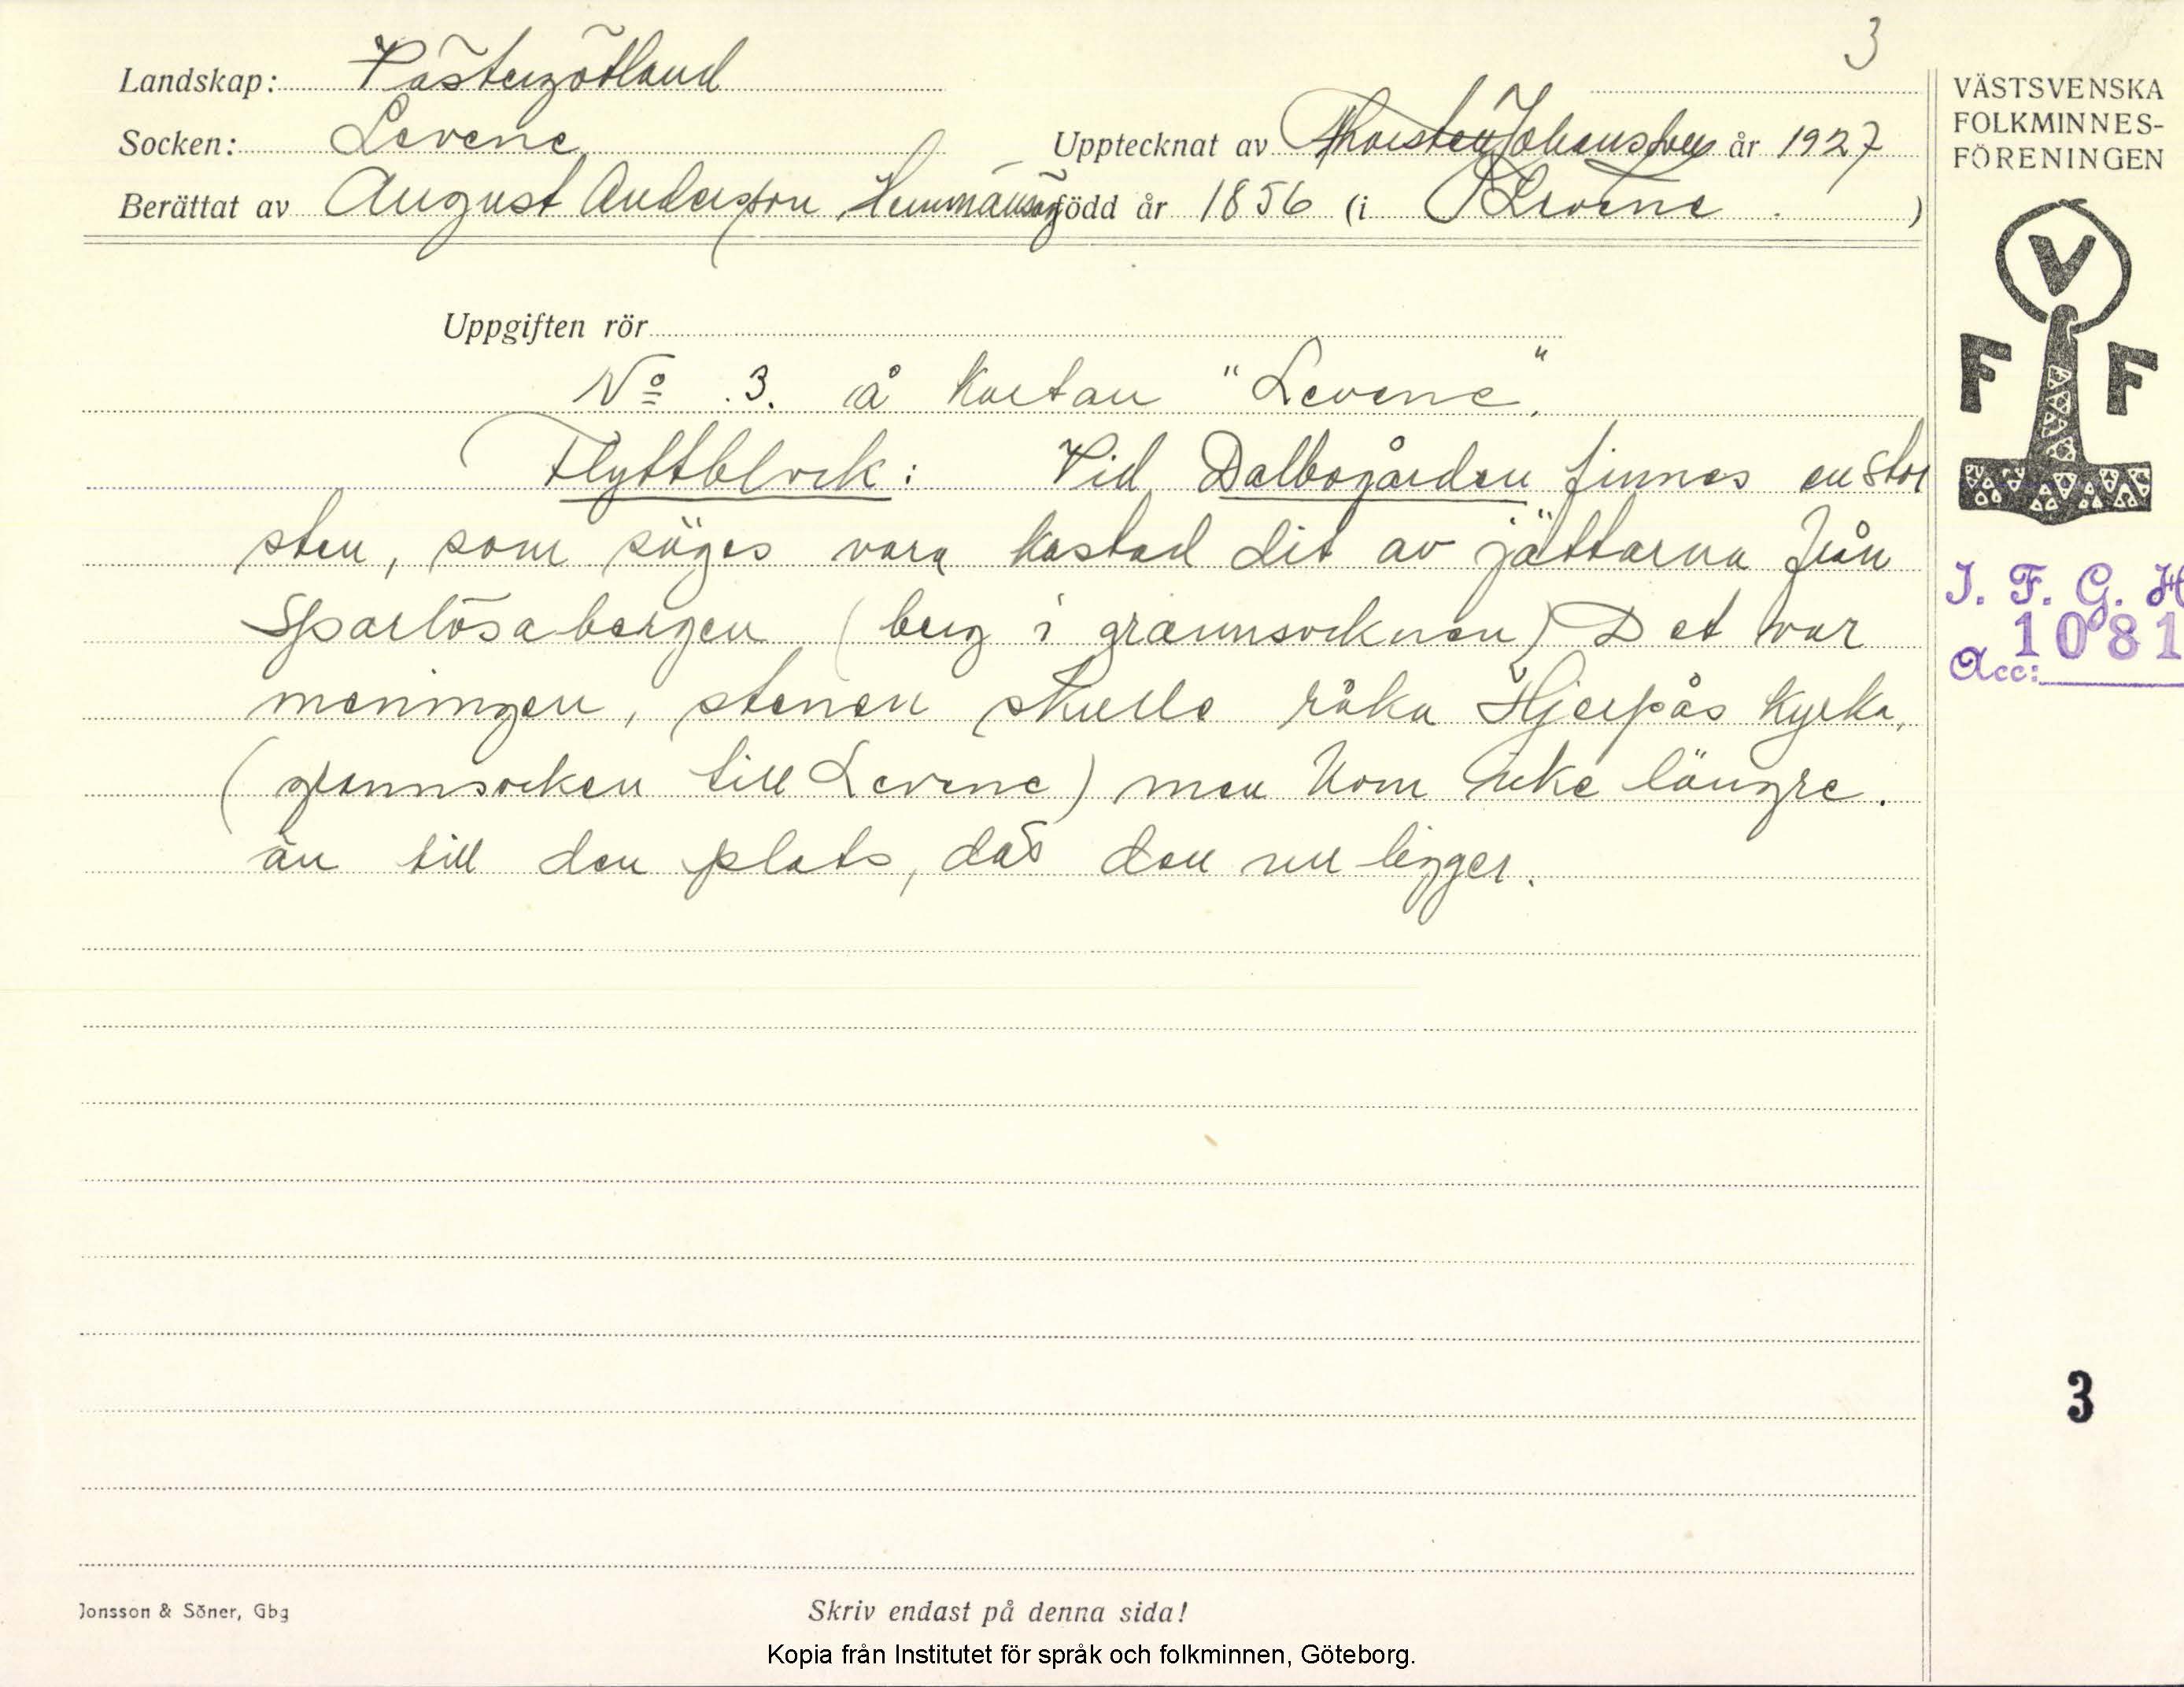 3
Landskap: Västergötland
Socken: Levene
Upptecknat av Thorsten Johansson år 1927
Berättat av August Andersson, Hemmansäg född år 1856 (i Levene.)
Uppgiften rör
No 3. å kartan "Levene".
Flyttblock: Vid Dalbogården finnes en stor
sten, som säges vara kastad dit av jättarna från
Sparlösabergen (berg i grannsocknen) Det var
meningen, stenen skulle råka Hjerpås kyrka,
(grannsocken till Levene) men kom icke längre.
än till den plats, där den nu ligger.
VÄSTSVENSKA
FOLKMINNES-
FÖRENINGEN
V
F F
I. F. G. H
1081
Acc:
3
Jonsson & Söner, Gbg
Skriv endast på denna sida!
Kopia från Institutet för språk och folkminnen, Göteborg.